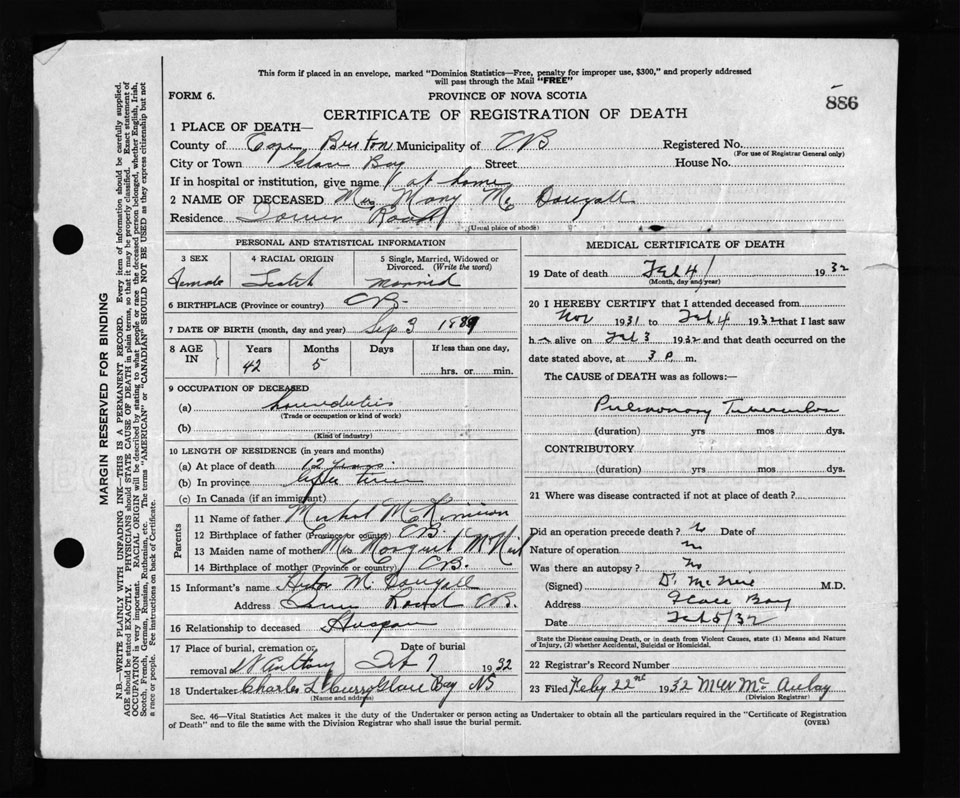 This form if placed in an envelope, marked "Dominion Statistics—Free, penalty for improper use, $300," and properly addressed
will pass through the Mail "FREE"
FORM 6. PROVINCE OF NOVA SCOTIA
886
CERTIFICATE OF REGISTRATION OF DEATH
1 PLACE OF DEATH—
County of Cape Breton Municipality of CB Registered No.
(For use of Registrar General only)
City or Town Glace Bay Street House No.
If in hospital or institution, give name at home
2 NAME OF DECEASED Mrs Mary Mc Dougall
Residence Road
(Usual place of abode)
PERSONAL AND STATISTICAL INFORMATION
3 SEX 4 RACIAL ORIGIN 5 Single, Married, Widowed or
Divorced. (Write the word)
Female Scotch Married
6 BIRTHPLACE (Province or country) CB
7 DATE OF BIRTH (month, day and year) Sep 3 1889
8 AGE IN Years Months Days If less than one day,
42 5 hrs. or min.
9 OCCUPATION OF DECEASED
(a)
(Trade or occupation or kind of work)
(b)
(Kind of industry)
10 LENGTH OF RESIDENCE (in years and months)
(a) At place of death 12 years
(b) In province
(c) In Canada (if an immigrant)
Parents
11 Name of father
12 Birthplace of father (Province or country) CB.
13 Maiden name of mother Mrs Margaret McNeil
14 Birthplace of mother (Province or country) CB.
15 Informant's name Mc Dougall
Address CB.
16 Relationship to deceased
17 Place of burial, cremation or Date of burial
removal St Anthony 7 1932
18 Undertaker Charles L Curry Glace Bay NS
(Name and address)
MEDICAL CERTIFICATE OF DEATH
19 Date of death Feb 4 1932
(Month, day and year)
20 I HEREBY CERTIFY that I attended deceased from
Nov 1931 to Feb 4 1932 that I last saw
h alive on Feb 3 1932 and that death occurred on the
date stated above, at 3 p. m.
The CAUSE of DEATH was as follows:—
Pulmonary Tuberculosis
(duration) yrs mos dys.
CONTRIBUTORY
(duration) yrs mos dys.
21 Where was disease contracted if not at place of death?
Did an operation precede death? No Date of
Nature of operation
Was there an autopsy? No
(Signed) M.D.
Address Glace Bay
Date Feb 5/32
State the Disease causing Death, or in death from Violent Causes, state (1) Means and Nature
of Injury, (2) whether Accidental, Suicidal or Homicidal.
22 Registrar's Record Number
23 Filed Feby 22nd 1932
(Division Registrar)
Sec. 46—Vital Statistics Act makes it the duty of the Undertaker or person acting as Undertaker to obtain all the particulars required in the "Certificate of Registration
of Death" and to file the same with the Division Registrar who shall issue the burial permit. (OVER)
MARGIN RESERVED FOR BINDING
N.B.—WRITE PLAINLY WITH UNFADING INK—THIS IS A PERMANENT RECORD. Every item of information should be carefully supplied.
AGE should be stated EXACTLY. PHYSICIANS should STATE CAUSE OF DEATH in plain terms, so that it may be properly classified. Exact statement of
OCCUPATION is very important. RACIAL ORIGIN will be described by stating to what people or race the deceased person belonged, whether English, Irish,
Scotch, French, German, Russian, Ruthenian, etc. The terms "AMERICAN" or "CANADIAN" SHOULD NOT BE USED as they express citizenship but not
a race or people. See instructions on back of Certificate.